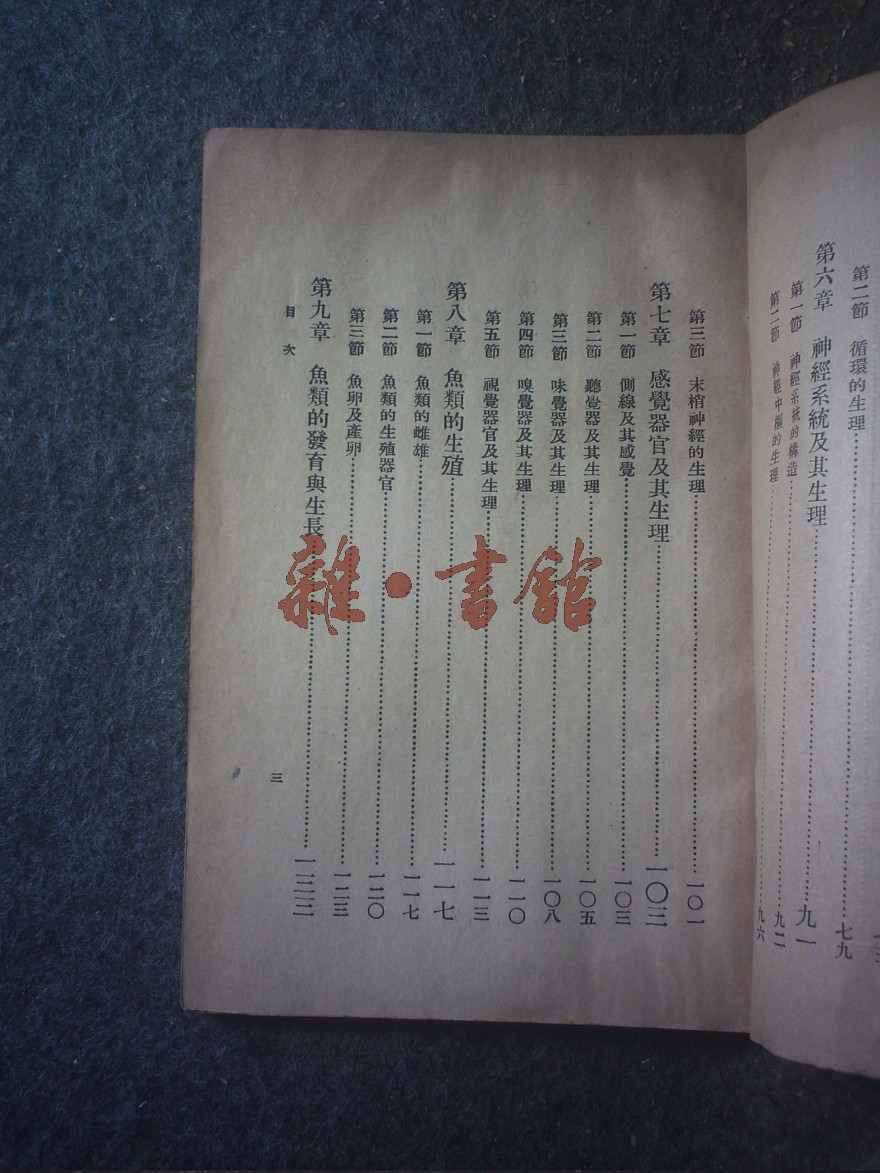 第二節　循環的生理……七九
第六章　神經系統及其生理……九一
第一節　神經系統的構造……九二
第二節　神經中樞的生理……九六
第三節　末梢神經的生理……一〇一
第七章　感覺器官及其生理……一〇三
第一節　側線及其感覺……一〇三
第二節　聽覺器及其生理……一〇五
第三節　味覺器及其生理……一〇八
第四節　嗅覺器及其生理……一一〇
第五節　視覺器官及其生理……一一三
第八章　魚類的生殖……一一七
第一節　魚類的雌雄……一一七
第二節　魚類的生殖器官……一二〇
第三節　魚卵及產卵……一二三
第九章　魚類的發育與生長……一三三
目次
三
雜·書館